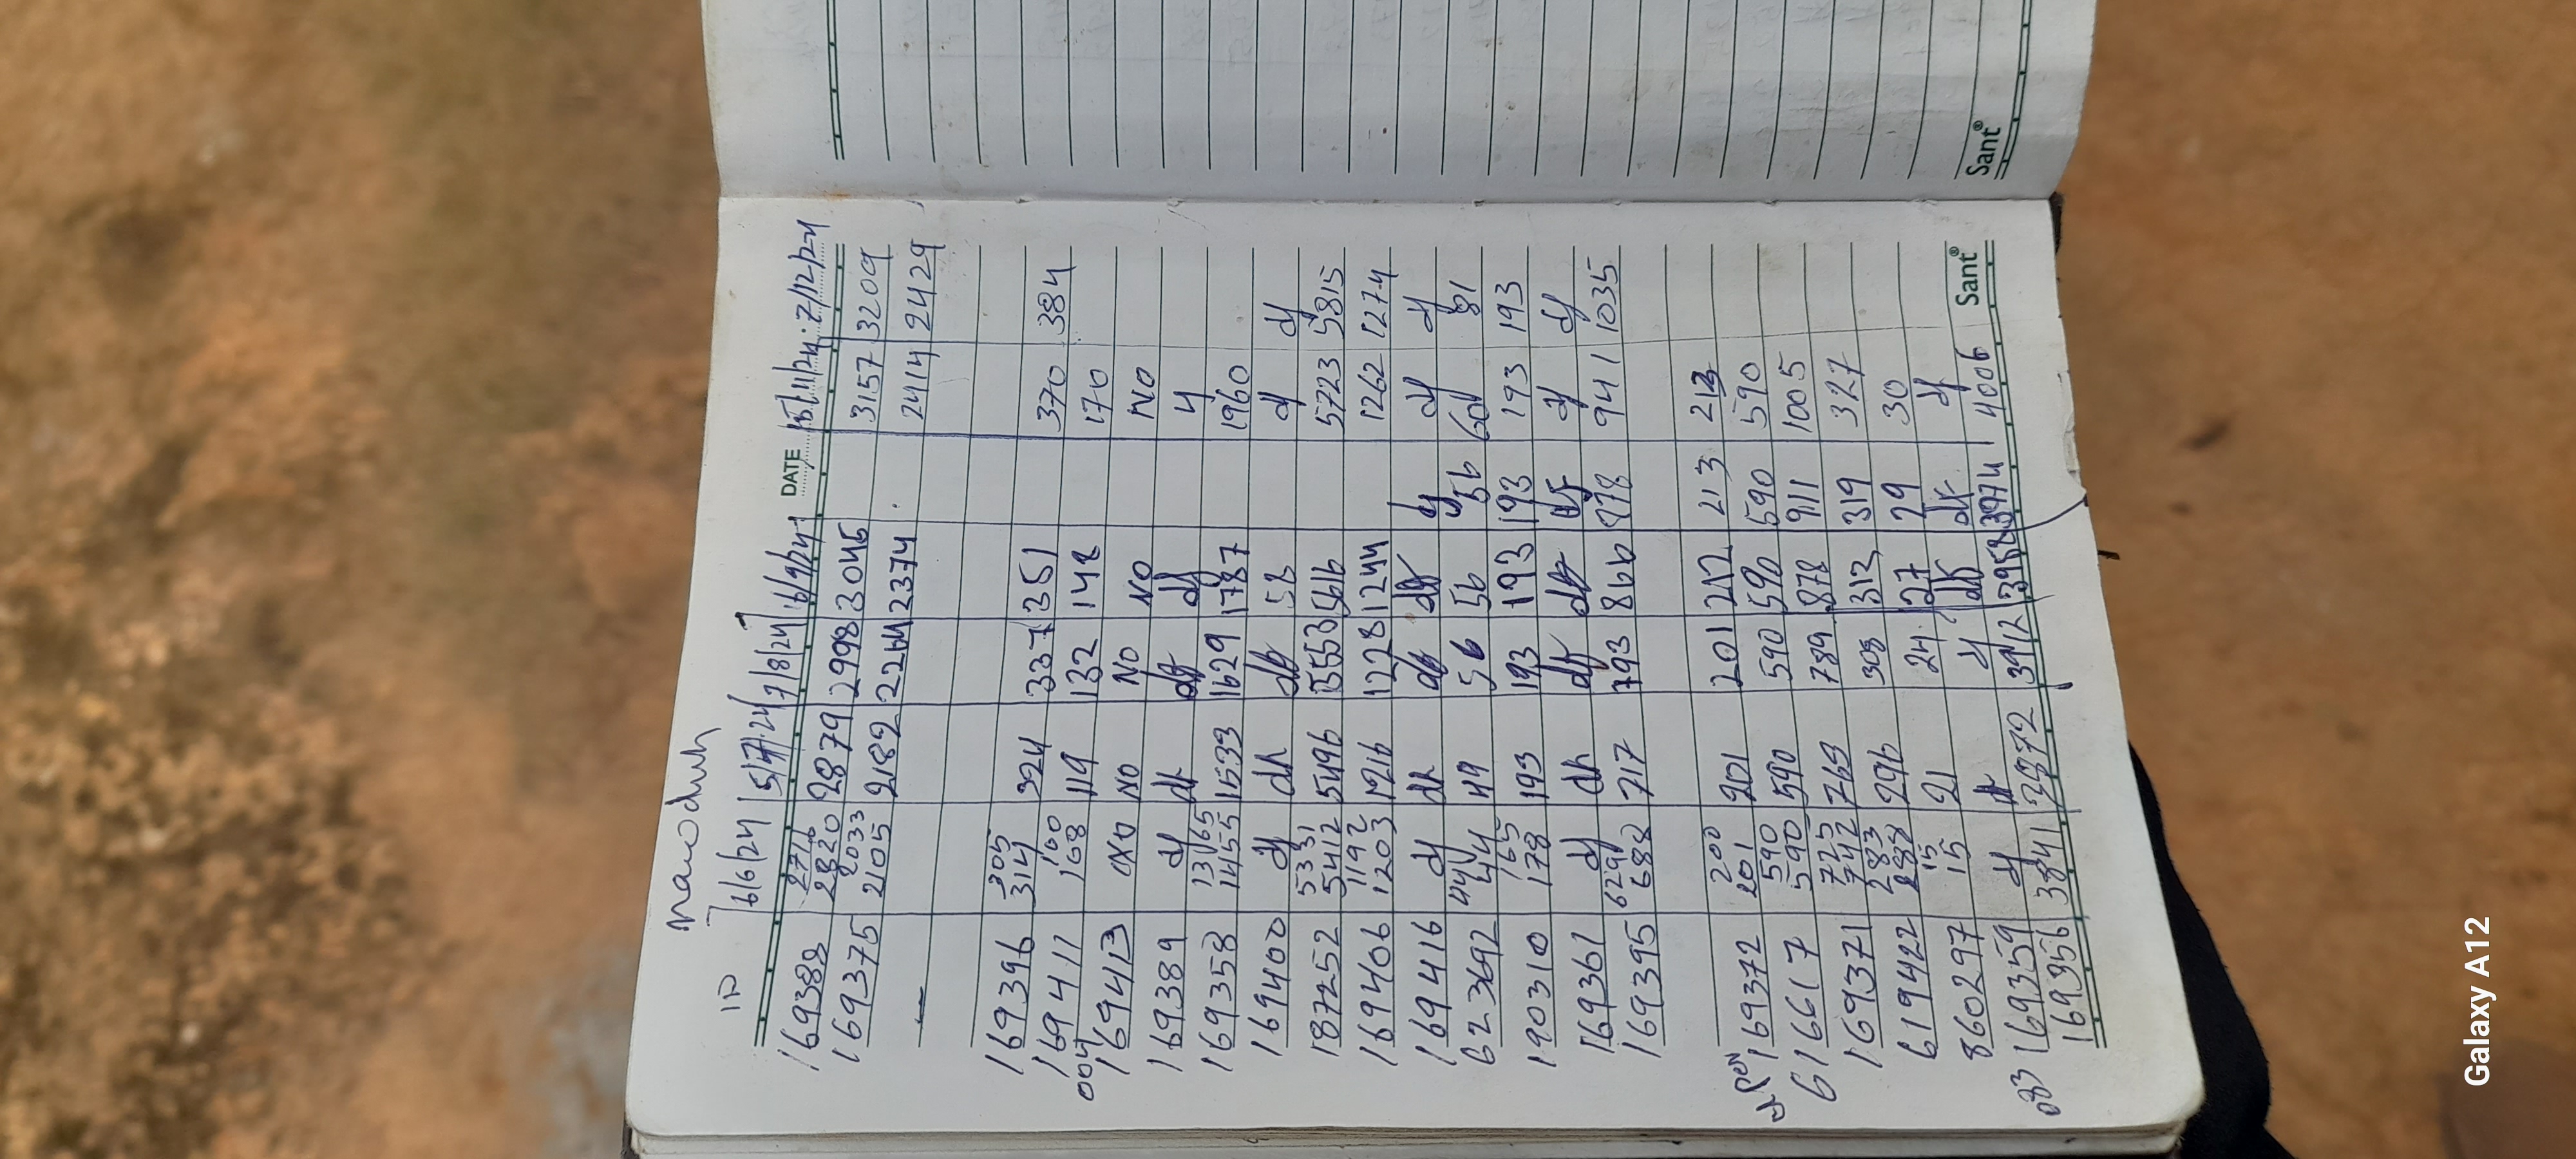 DATE 15/11/24 7/12/24
ID 6/6/24 5/7/24 7/8/24 6/9/24
169388 2716 2820 2879 2998 3045 3157 3209
169375 2033 2105 2182 2264 2374 2414 2429
169396 305 314 324 337 351 370 384
169411 100 108 119 132 148 170
004
169413 NO NO NO NO
169389 df dh df df y
169358 1365 1455 1533 1629 1787 1960
169400 df dh df 58 df df
187252 5331 5412 5496 5553 5616 5723 5815
169406 1192 1203 1216 1228 1244 1262 1274
169416 df dh df df y df df
623692 44 44 49 56 56 56 60 81
190310 165 178 193 193 193 193 193 193
169361 df dh df df df df df
169395 629 688 717 793 866 878 941 1035
169372 200 201 201 201 212 213 213
616617 590 590 590 590 590 590 590
169371 725 742 763 789 878 911 1005
619422 283 288 296 308 312 319 327
860297 15 15 21 24 27 29 30
083 169359 df dh y df df df
169356 3841 3872 3912 3958 3974 4006
Sant®
Sant®
Galaxy A12